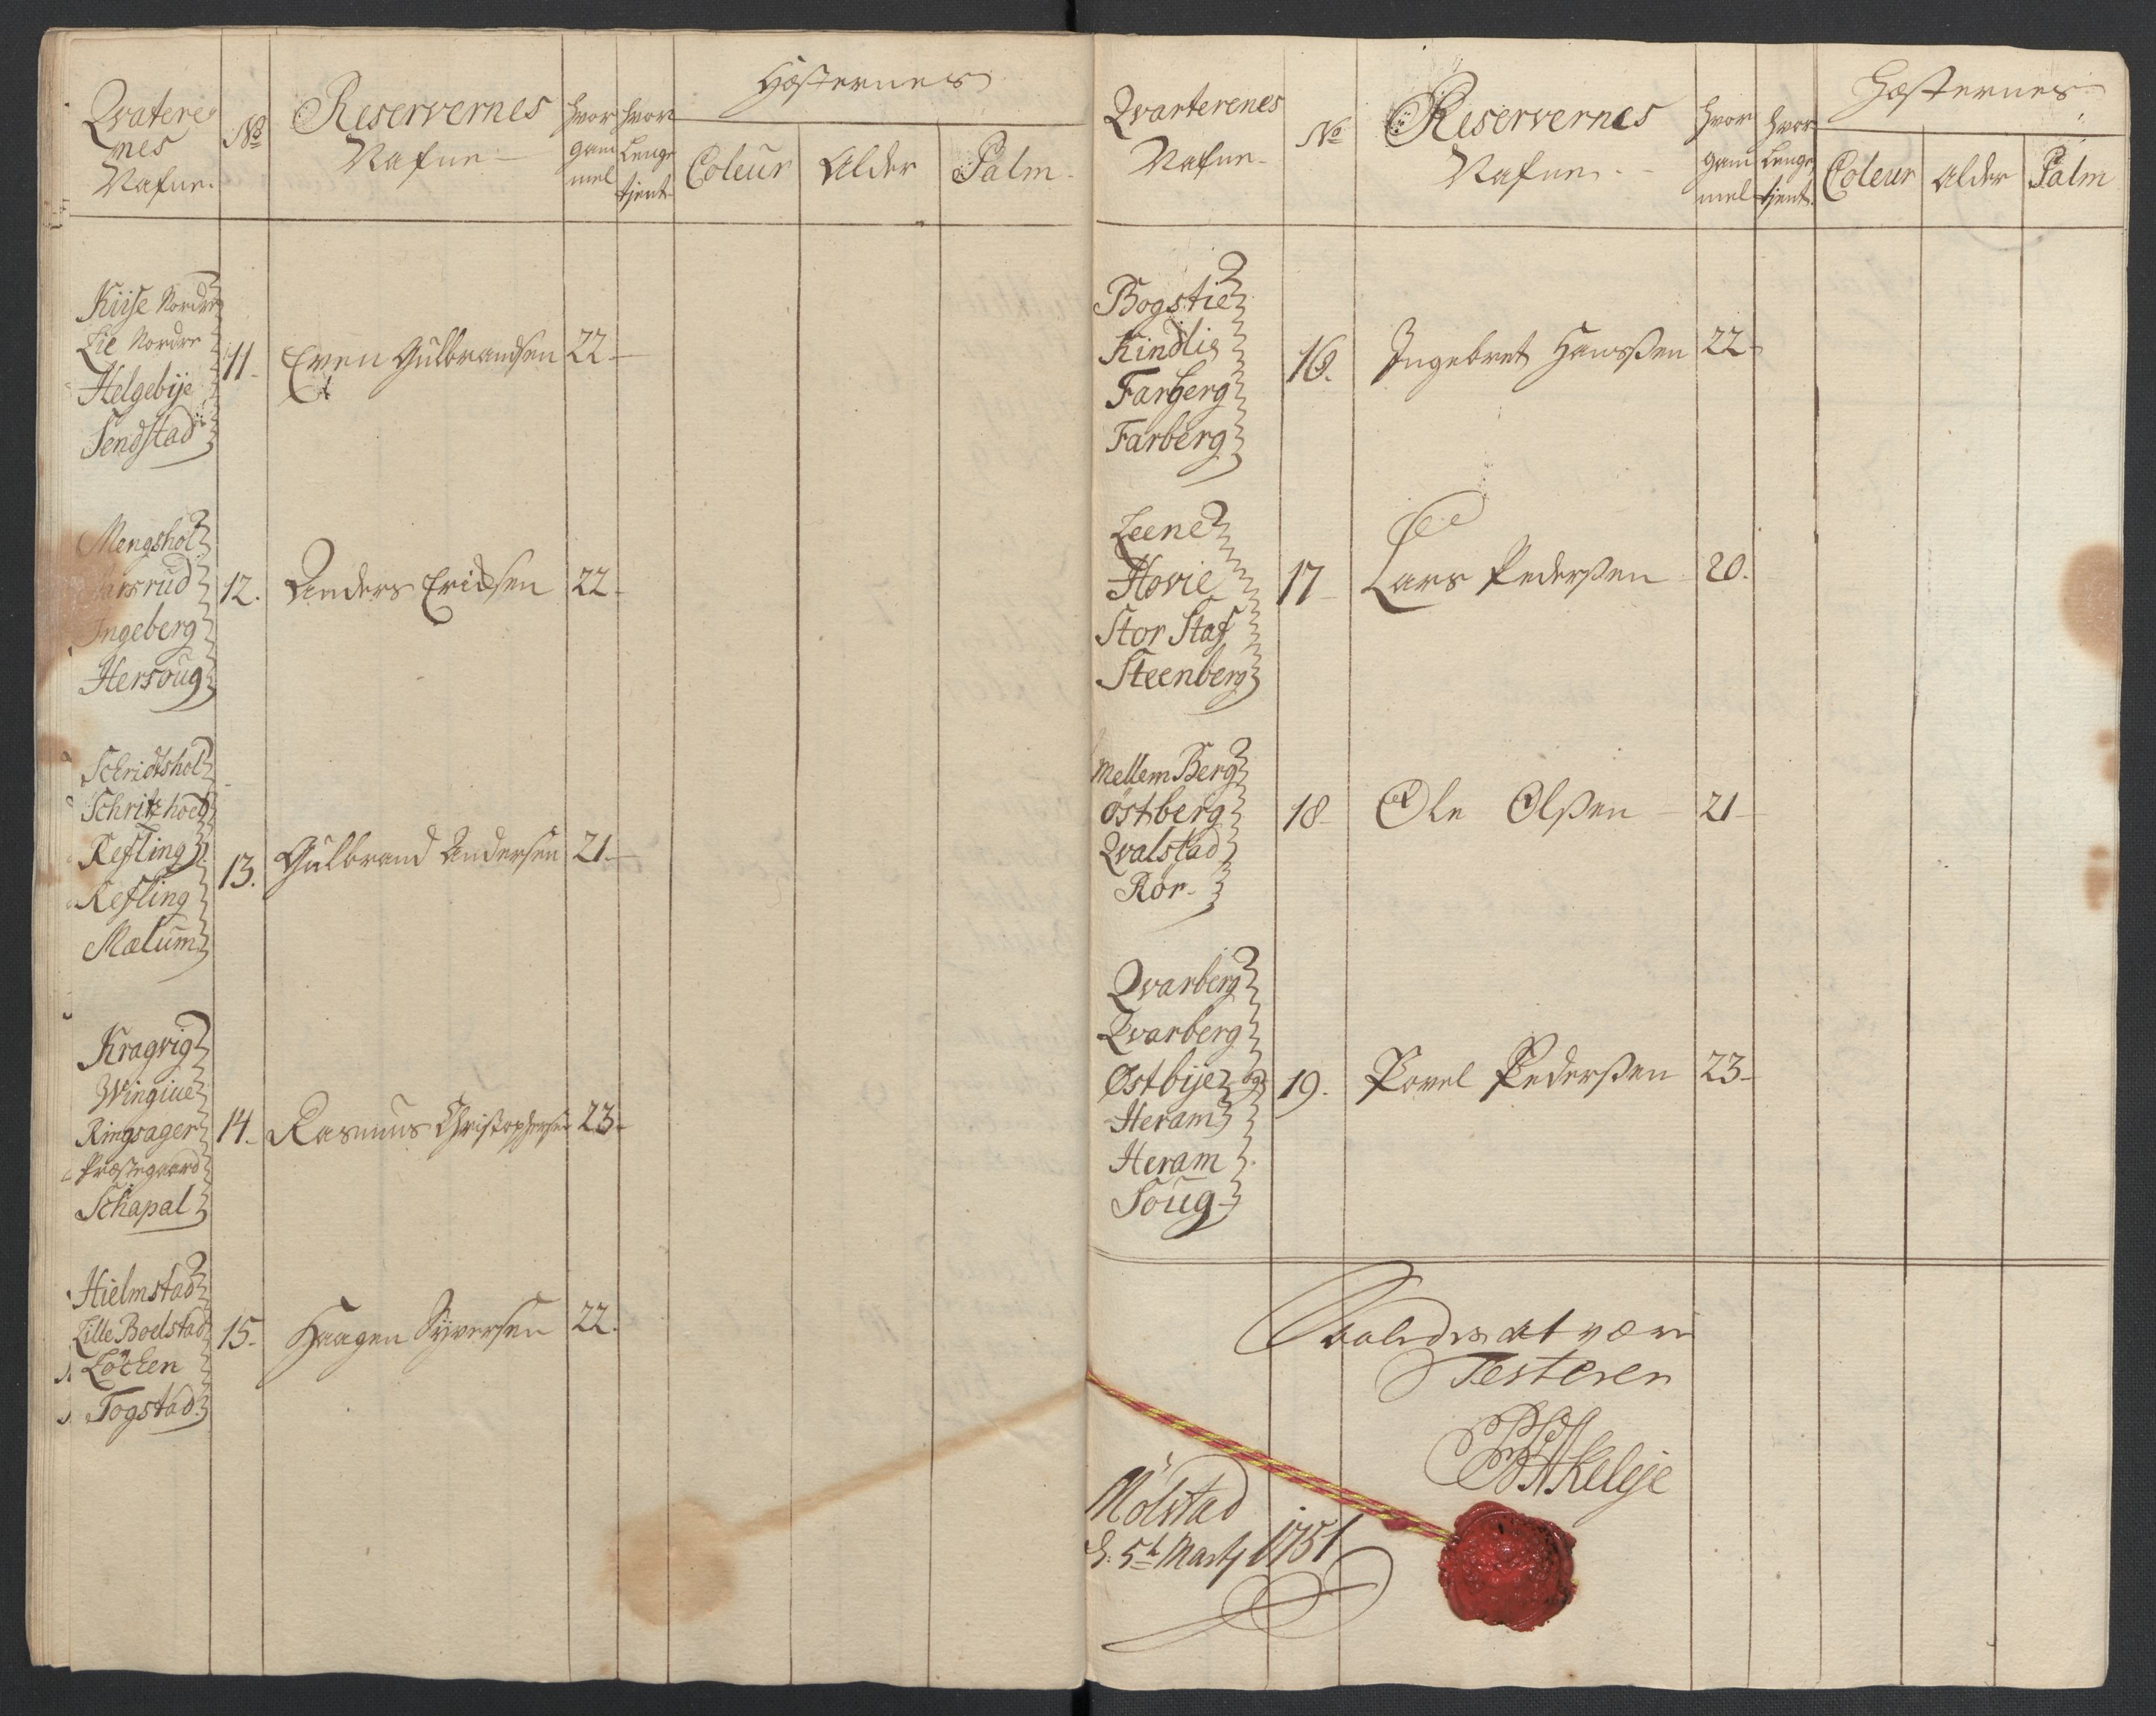 Qvatere
nes
Nafne.
No
Reservernes
Nafne
hvor
gam
mel
hvor
Lenge
tjent
Hæsternes
Coleur
Alder
Palm
Kiise Nordre
Lie Nordre
Helgebÿe
Sendstad
11
Even Gulbrandsen
22
Mengshol
Ingeberg
Hersoug
12.
Anders Ericksen
22
Schridtshol
Schritzhoel
Refling
Refling
Mælum
13.
Gulbrand Andersen
21
Kragvig
Wingiue
Ringsager
Præstegaard
Schapal
14
Rasmus Christophersen
23
Hielmstad
Lille Boelstad
Löcken
Togstad
15
Haagen Syversen
22.
Qvarterenes
Nafne
No
Reservernes
Nafne
hvor
gam
mel
hvor
Lenge
tjent
Hæsternes
Coleur
Alder
Palm
Bogstie
Kindlie
Farberg
Farberg
16.
Ingebret Hanssen
22
Leene
Hovie
Stor Staf
Steenberg
17
Lars Pederssen
20.
Mellem Berg
östberg
Qvalstad
Rör
18
Ole Olssen
21
Qvarberg
Qvarberg
Østbÿe og
Heram
Heram
Soug
19.
Povel Pederssen
23
Saaledes at være
Testerer
Akeleje
Mölstad
d. 5t Martj 1751